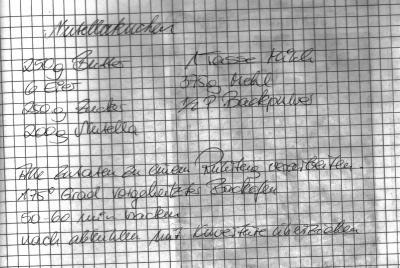 Nutellakuchen
250g Butter
6 Eier
250g Zucker
200g Nutella
1 Tasse Milch
375g Mehl
1/2 P Backpulver
Alle Zutaten zu einem Rührteig verarbeiten.
175° Grad vorgeheizter Backofen
50-60 min backen
nach abkühlen mit Kuvertüre überziehen